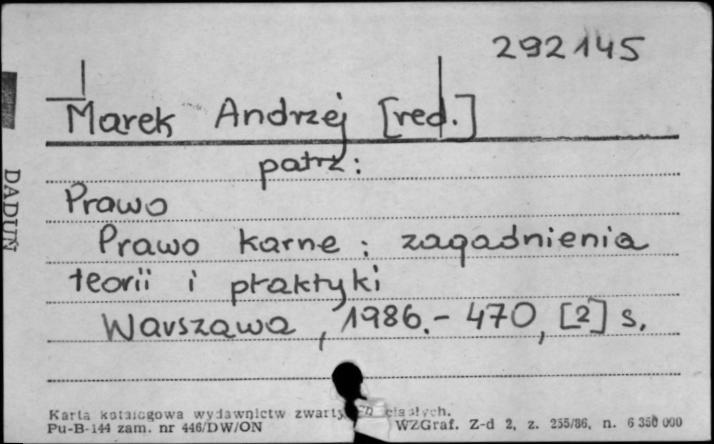 292145
Marek Andrzej [red.]
patrz:
Prawo
Prawo karne : zagadnienia
teorii i praktyki
Warszawa, 1986.- 470, [2] s.
DADUŃ
Karta katalogowa wydawnictw zwartych ciągłych.
Pu-B-144 zam. nr 446/DW/ON WZGraf. Z-d 2, z. 255/86, n. 6 350 000